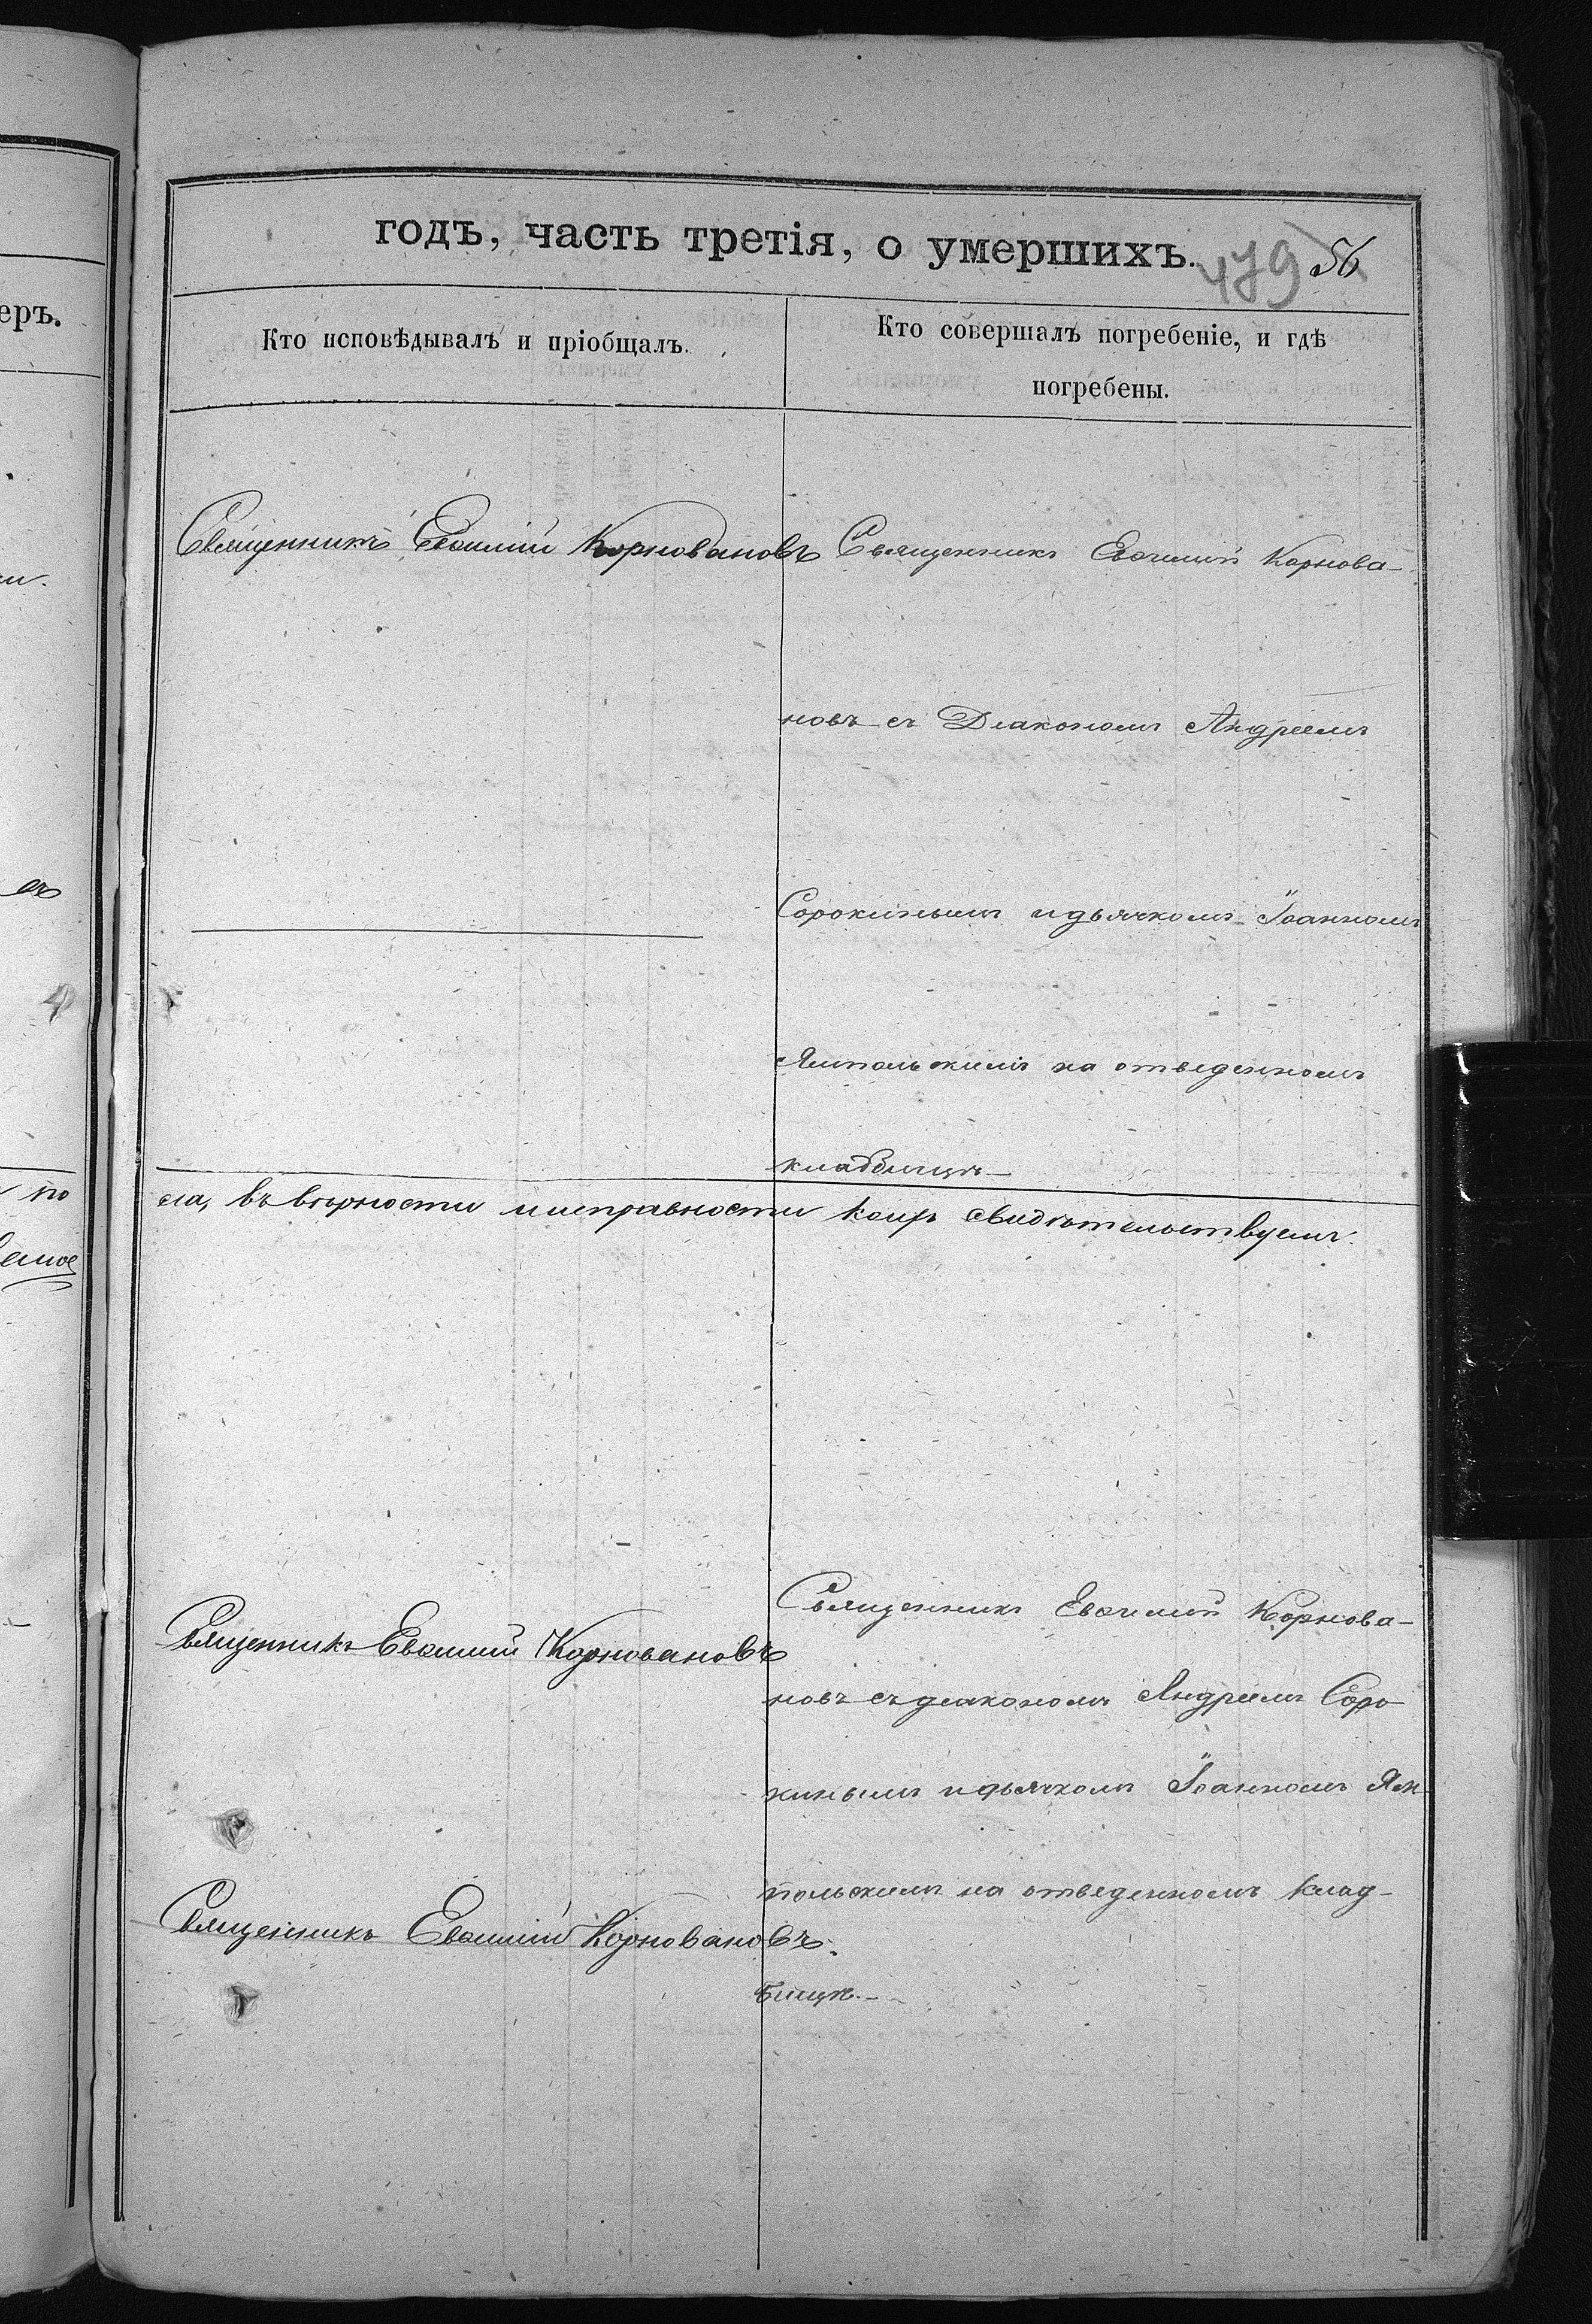 годъ, часть третія, о умершихъ.
479 56
Кто исповѣдывалъ и пріобщалъ.
Кто совершалъ погребеніе, и гдѣ
погребены.
Священникъ Евѳимій Корновановъ
Священникъ Евѳимій Корнова-
новъ съ Діакономъ Андреемъ
Сорокинымъ и дьячкомъ Іоанномъ
Ямпольскимъ на отведенномъ
кладбищѣ
ела, въ вѣрности и исправности коихъ свидѣтельствуемъ.
Священникъ Евѳимій Корновановъ
Священникъ Евѳимій Корнова-
новъ съ діакономъ Андреемъ Соро
кинымъ и дьячкомъ Іоанномъ Ям
польскимъ на отведенномъ клад-
бищѣ.
Священникъ Евѳимій Корновановъ.
еръ.
по